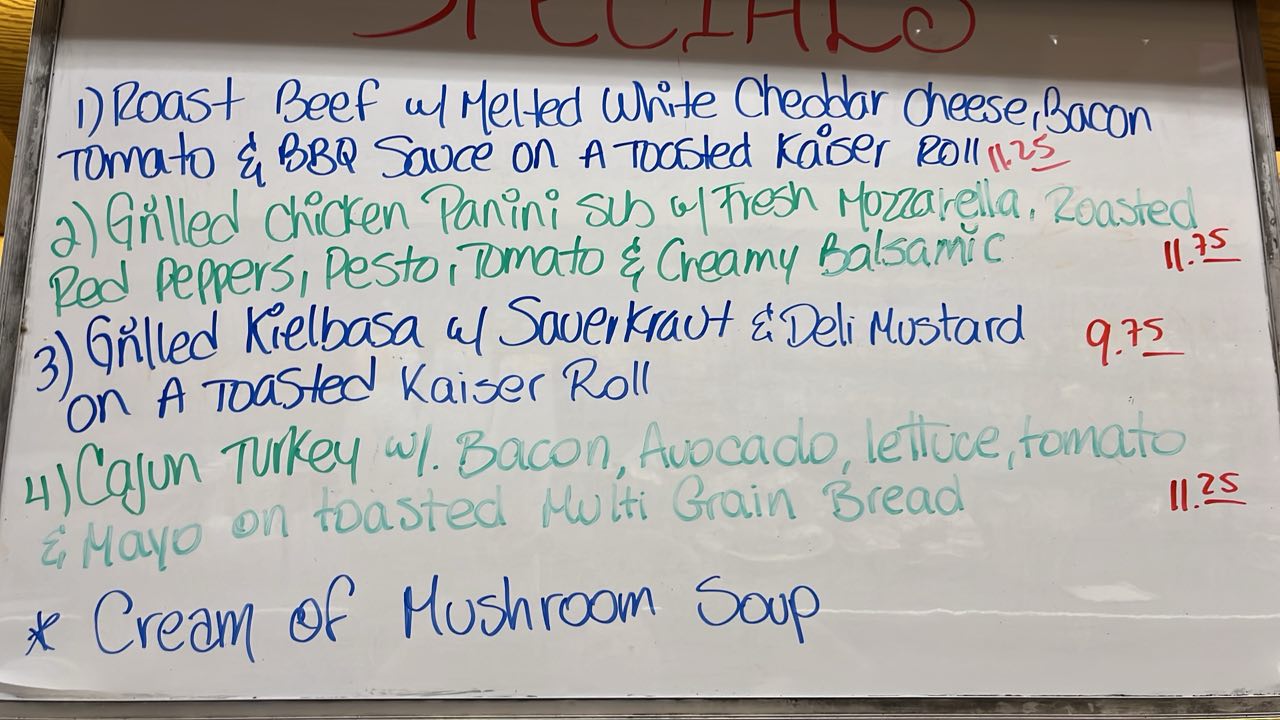 SPECIALS
1) Roast Beef w/ Melted White Cheddar Cheese, Bacon
Tomato & BBQ Sauce on A Toasted Kaiser Roll 11.25
2) Grilled Chicken Panini Sub w/ Fresh Mozzarella, Roasted
Red Peppers, Pesto, Tomato & Creamy Balsamic 11.75
3) Grilled Kielbasa w/ Sauerkraut & Deli Mustard 9.75
on A Toasted Kaiser Roll
4) Cajun Turkey w/. Bacon, Avocado, lettuce, tomato
& Mayo on toasted Multi Grain Bread 11.25
* Cream of Mushroom Soup